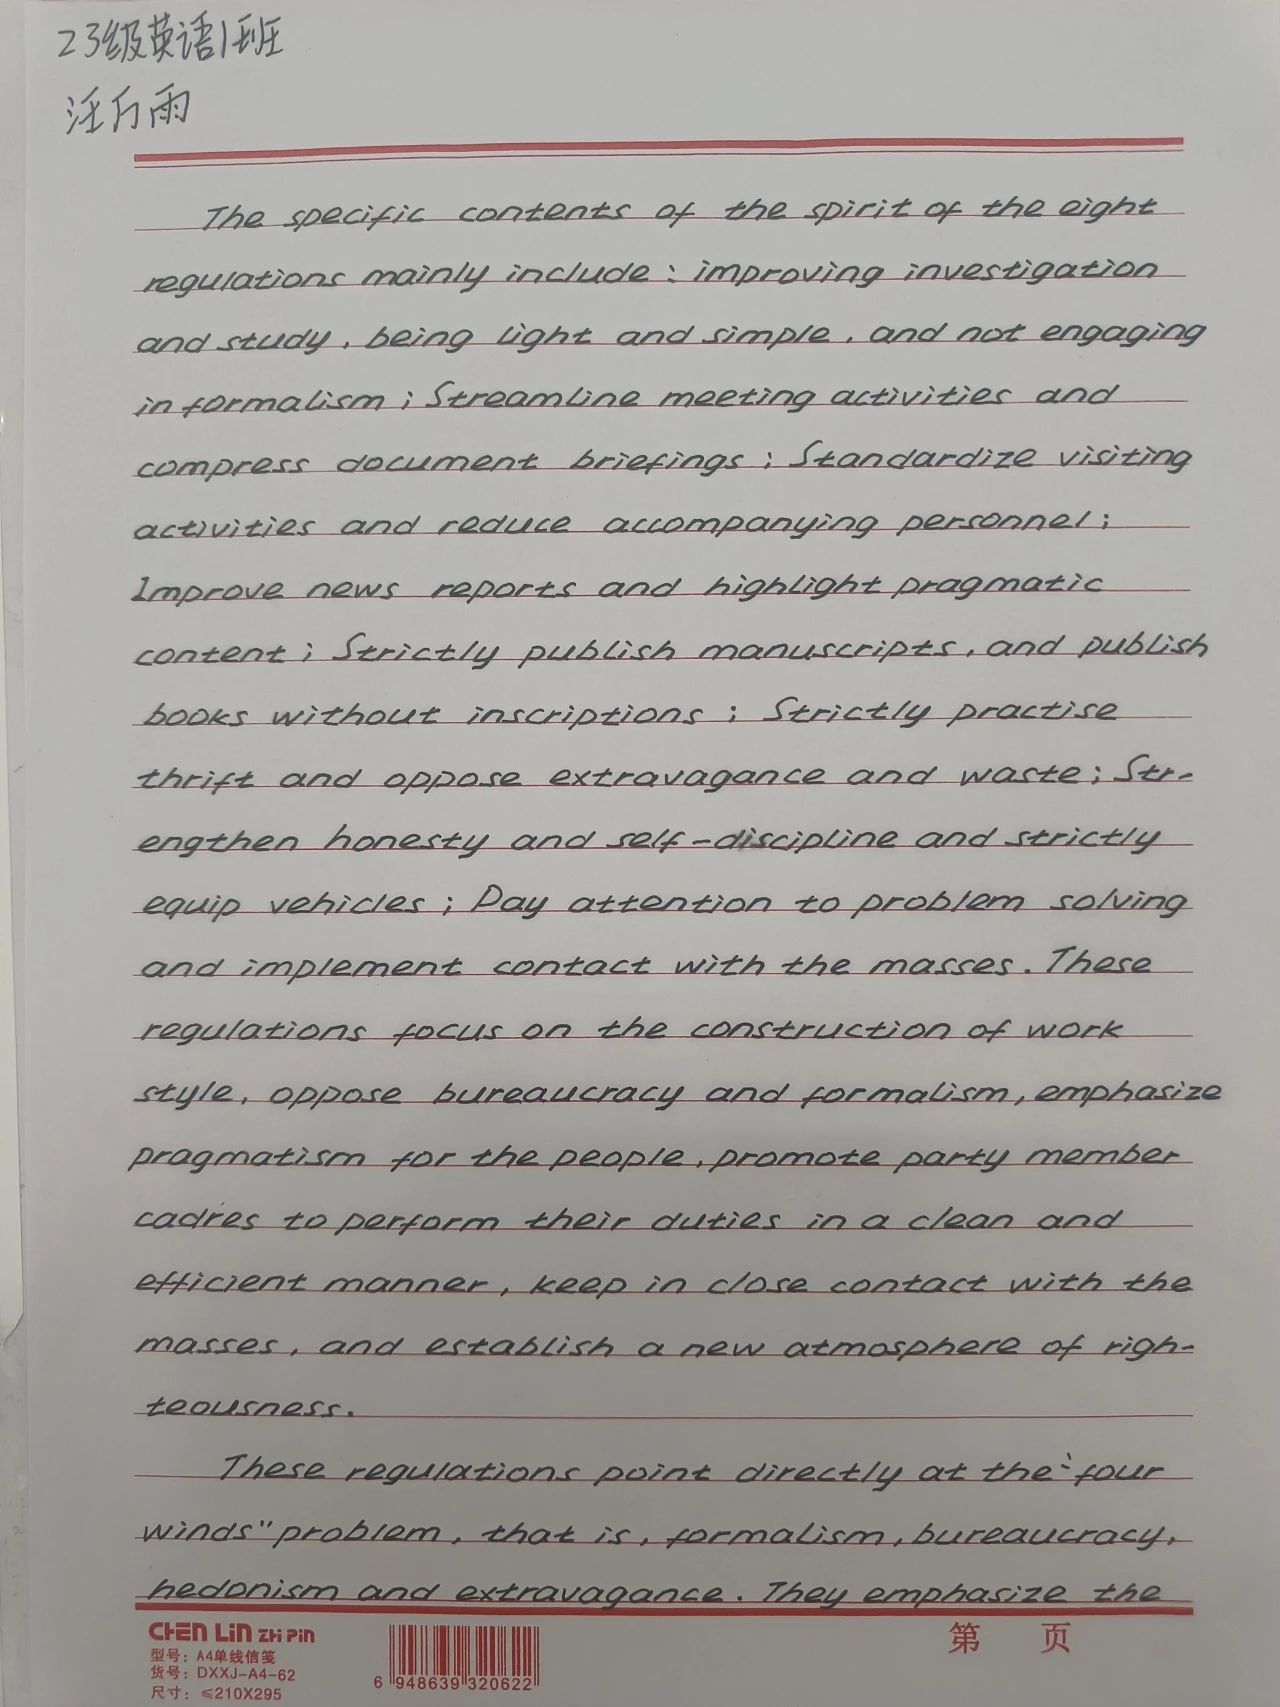 23级英语1班
汪方雨
The specific contents of the spirit of the eight
regulations mainly include : improving investigation
and study, being light and simple, and not engaging
in formalism ; Streamline meeting activities and
compress document briefings ; Standardize visiting
activities and reduce accompanying personnel ;
Improve news reports and highlight pragmatic
content ; Strictly publish manuscripts, and publish
books without inscriptions ; Strictly practise
thrift and oppose extravagance and waste ; Str-
engthen honesty and self-discipline and strictly
equip vehicles ; Pay attention to problem solving
and implement contact with the masses. These
regulations focus on the construction of work
style, oppose bureaucracy and formalism, emphasize
pragmatism for the people, promote party member
cadres to perform their duties in a clean and
efficient manner, keep in close contact with the
masses, and establish a new atmosphere of righ-
teousness.
These regulations point directly at the "four
winds" problem, that is, formalism, bureaucracy,
hedonism and extravagance. They emphasize the
CHEN LIN ZHI PIN
第 页
型号: A4单线信笺
货号: DXXJ-A4-62
尺寸: ≤210X295
6 948639 320622